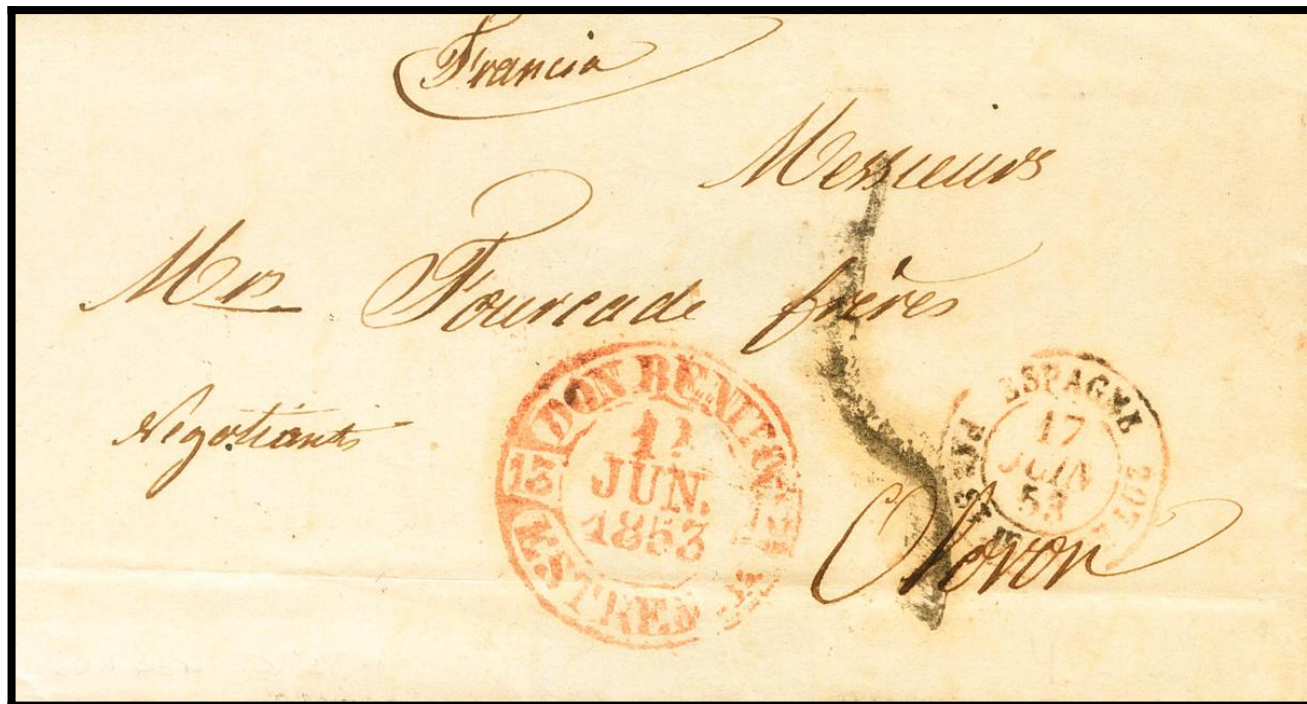 Francia
Messieurs
Mrs Fourcade frères
Négotiants
Oloron
DON BENITO
13
JUN.
1853
ESTREM
ESPAGNE
17
JUIN
53